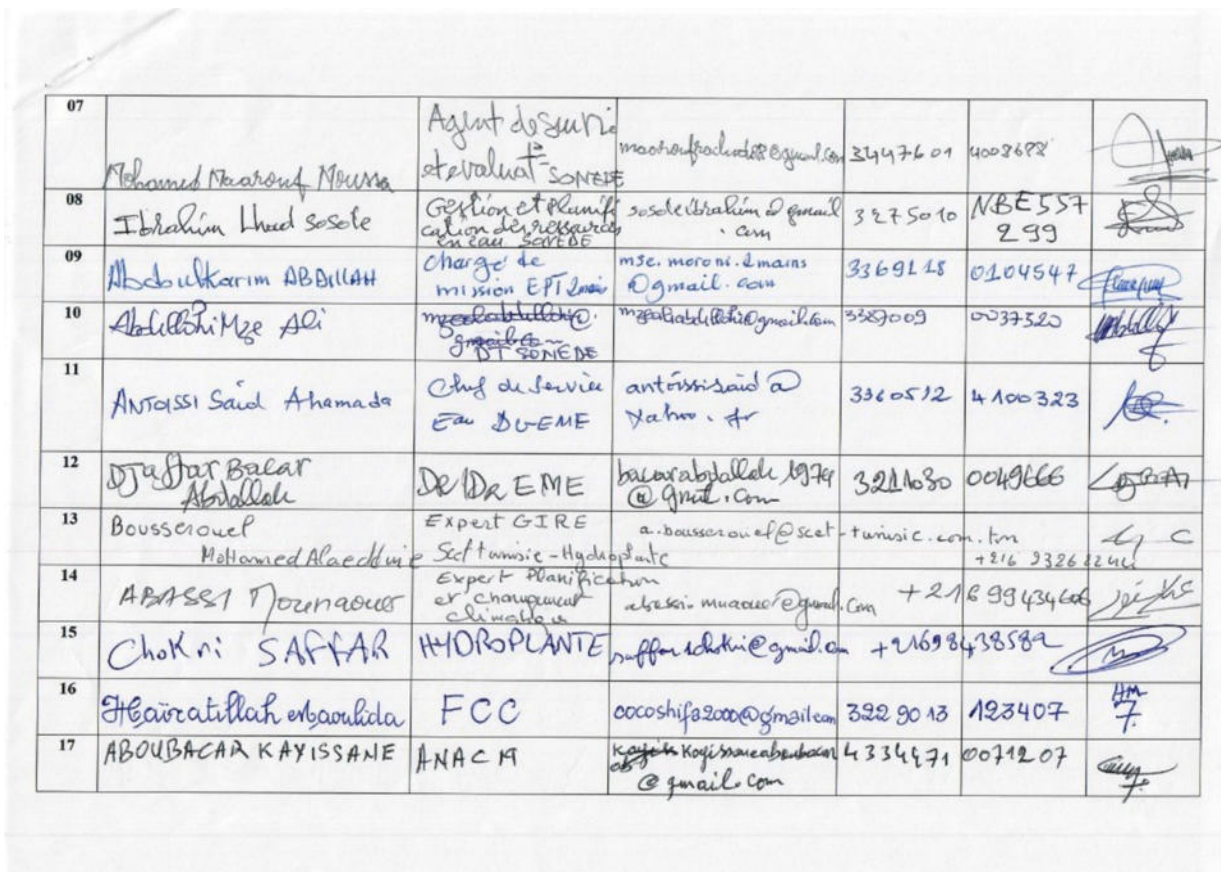 07
Mohamed Maarouf Moussa
Agent de suivi
et evaluat° SONEDE
3447601
4008698
08
Ibrahim Lhad Sosole
Gestion et Planifi
cation des ressources
en eau SONEDE
sosoleibrahim@gmail
.com
3275010
NBE557
299
09
Abdoulkarim ABDILLAH
chargé de
mission EPT 2mains
mse.moroni.2mains
@gmail.com
3369118
0104547
10
Abdillahi Mze Ali
DT SONEDE
mzealiabdillahi@gmail.com
3387009
0037320
11
ANTOISSI Said Ahamada
Chef de Service
Eau DGEME
antoissisaid@
Yahoo.fr
3360512
4100323
12
Djaffar Bacar
Abdallah
EME
bacarabdallah1979
@gmail.com
3211030
0049666
13
Bousserouel
Mohamed Alaeddine
Expert GIRE
Scet tunisie-Hydroplante
a.bousserouel@scet-tunisie.com.tn
+216
14
ABASSI Mounaouer
Expert Planification
et Changement
climatique
abassi.munaouer@gmail.com
+216 99434606
15
Chokri SAFFAR
HYDROPLANTE
saffar.chokri@gmail.com
+21698438582
16
Hairatillah mbaoulida
FCC
cocoshifa2000@gmail.com
322 90 13
123407
HM
17
ABOUBACAR KAYISSANE
ANACM
Kayissaneaboubacar
@gmail.com
4334471
0071207